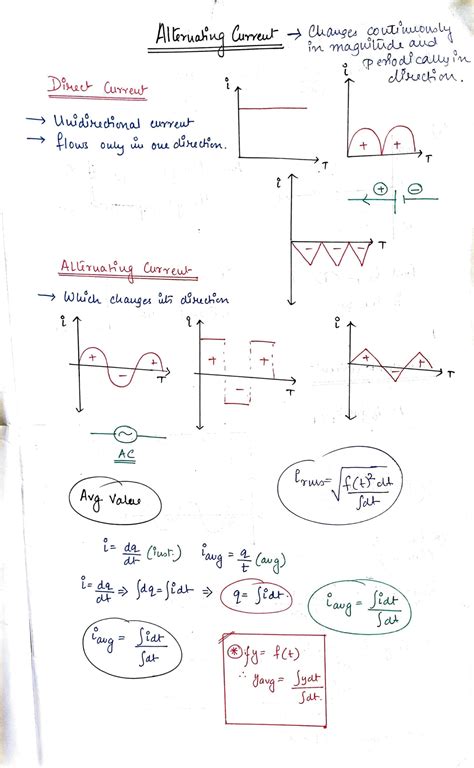 Alternating Current → Changes continuously
in magnitude and
periodically in
direction.
Direct Current
→ Unidirectional current
→ flows only in one direction.
i
T
i
+ +
T
i
- - -
T
+ -
Alternating Current
→ Which changes its direction
i
+
-
T
i
+ +
-
T
i
+ +
-
T
AC
Avg value
i_rms = √(∫f(t)² dt / ∫dt)
i = dq/dt (inst.) i_avg = q/t (avg)
i = dq/dt ⇒ ∫dq = ∫idt ⇒ q = ∫idt
i_avg = ∫idt / ∫dt
i_avg = ∫idt / ∫dt
* fy = f(t)
∴ y_avg = ∫ydt / ∫dt.